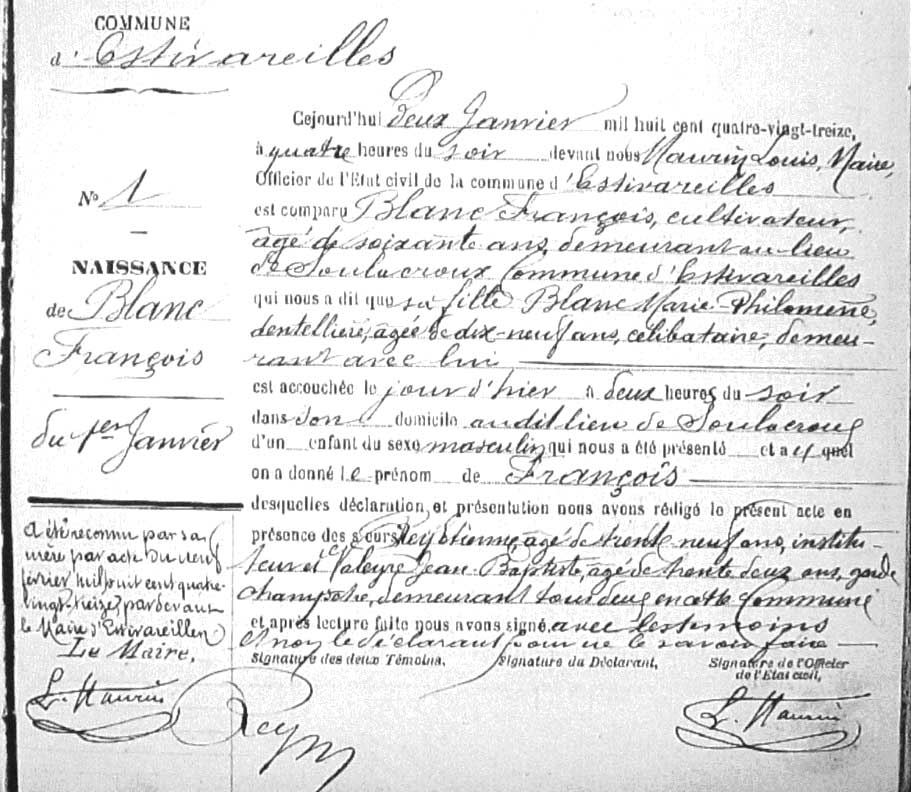 COMMUNE
d'Estivareilles
N° 1
NAISSANCE
de Blanc
François
du 1er Janvier
A été reconnu par sa
mère par acte du neuf
février mil huit cent quatre-
vingt-treize, par devant
le Maire d'Estivareilles
Le Maire,
L. Maurin
Cejourd'hui deux Janvier mil huit cent quatre-vingt-treize,
à quatre heures du soir devant nous Maurin Louis, Maire,
Officier de l'Etat civil de la commune d'Estivareilles
est comparu Blanc François, cultivateur,
âgé de soixante ans, demeurant au lieu
de Soulacroux Commune d'Estivareilles
qui nous a dit que sa fille Blanc Marie-Philomène,
dentellière, agée de dix-neuf ans, célibataire, demeu-
rant avec lui
est accouchée le jour d'hier à deux heures du soir
dans son domicile audit lieu de Soulacroux
d'un enfant du sexe masculin qui nous a été présenté et auquel
on a donné le prénom de François
desquelles déclaration et présentation nous avons rédigé le présent acte en
présence des sieurs Rey Etienne, agé de trente neuf ans, institu-
teur et Valeyre Jean-Baptiste, agé de trente deux ans, garde
champêtre, demeurant tous deux en cette Commune
et après lecture faite nous avons signé avec les témoins
et non le déclarant pour ne le savoir faire
Signature des deux Témoins, Signature du Déclarant, Signature de l'Officier
de l'Etat civil,
Rey
L. Maurin